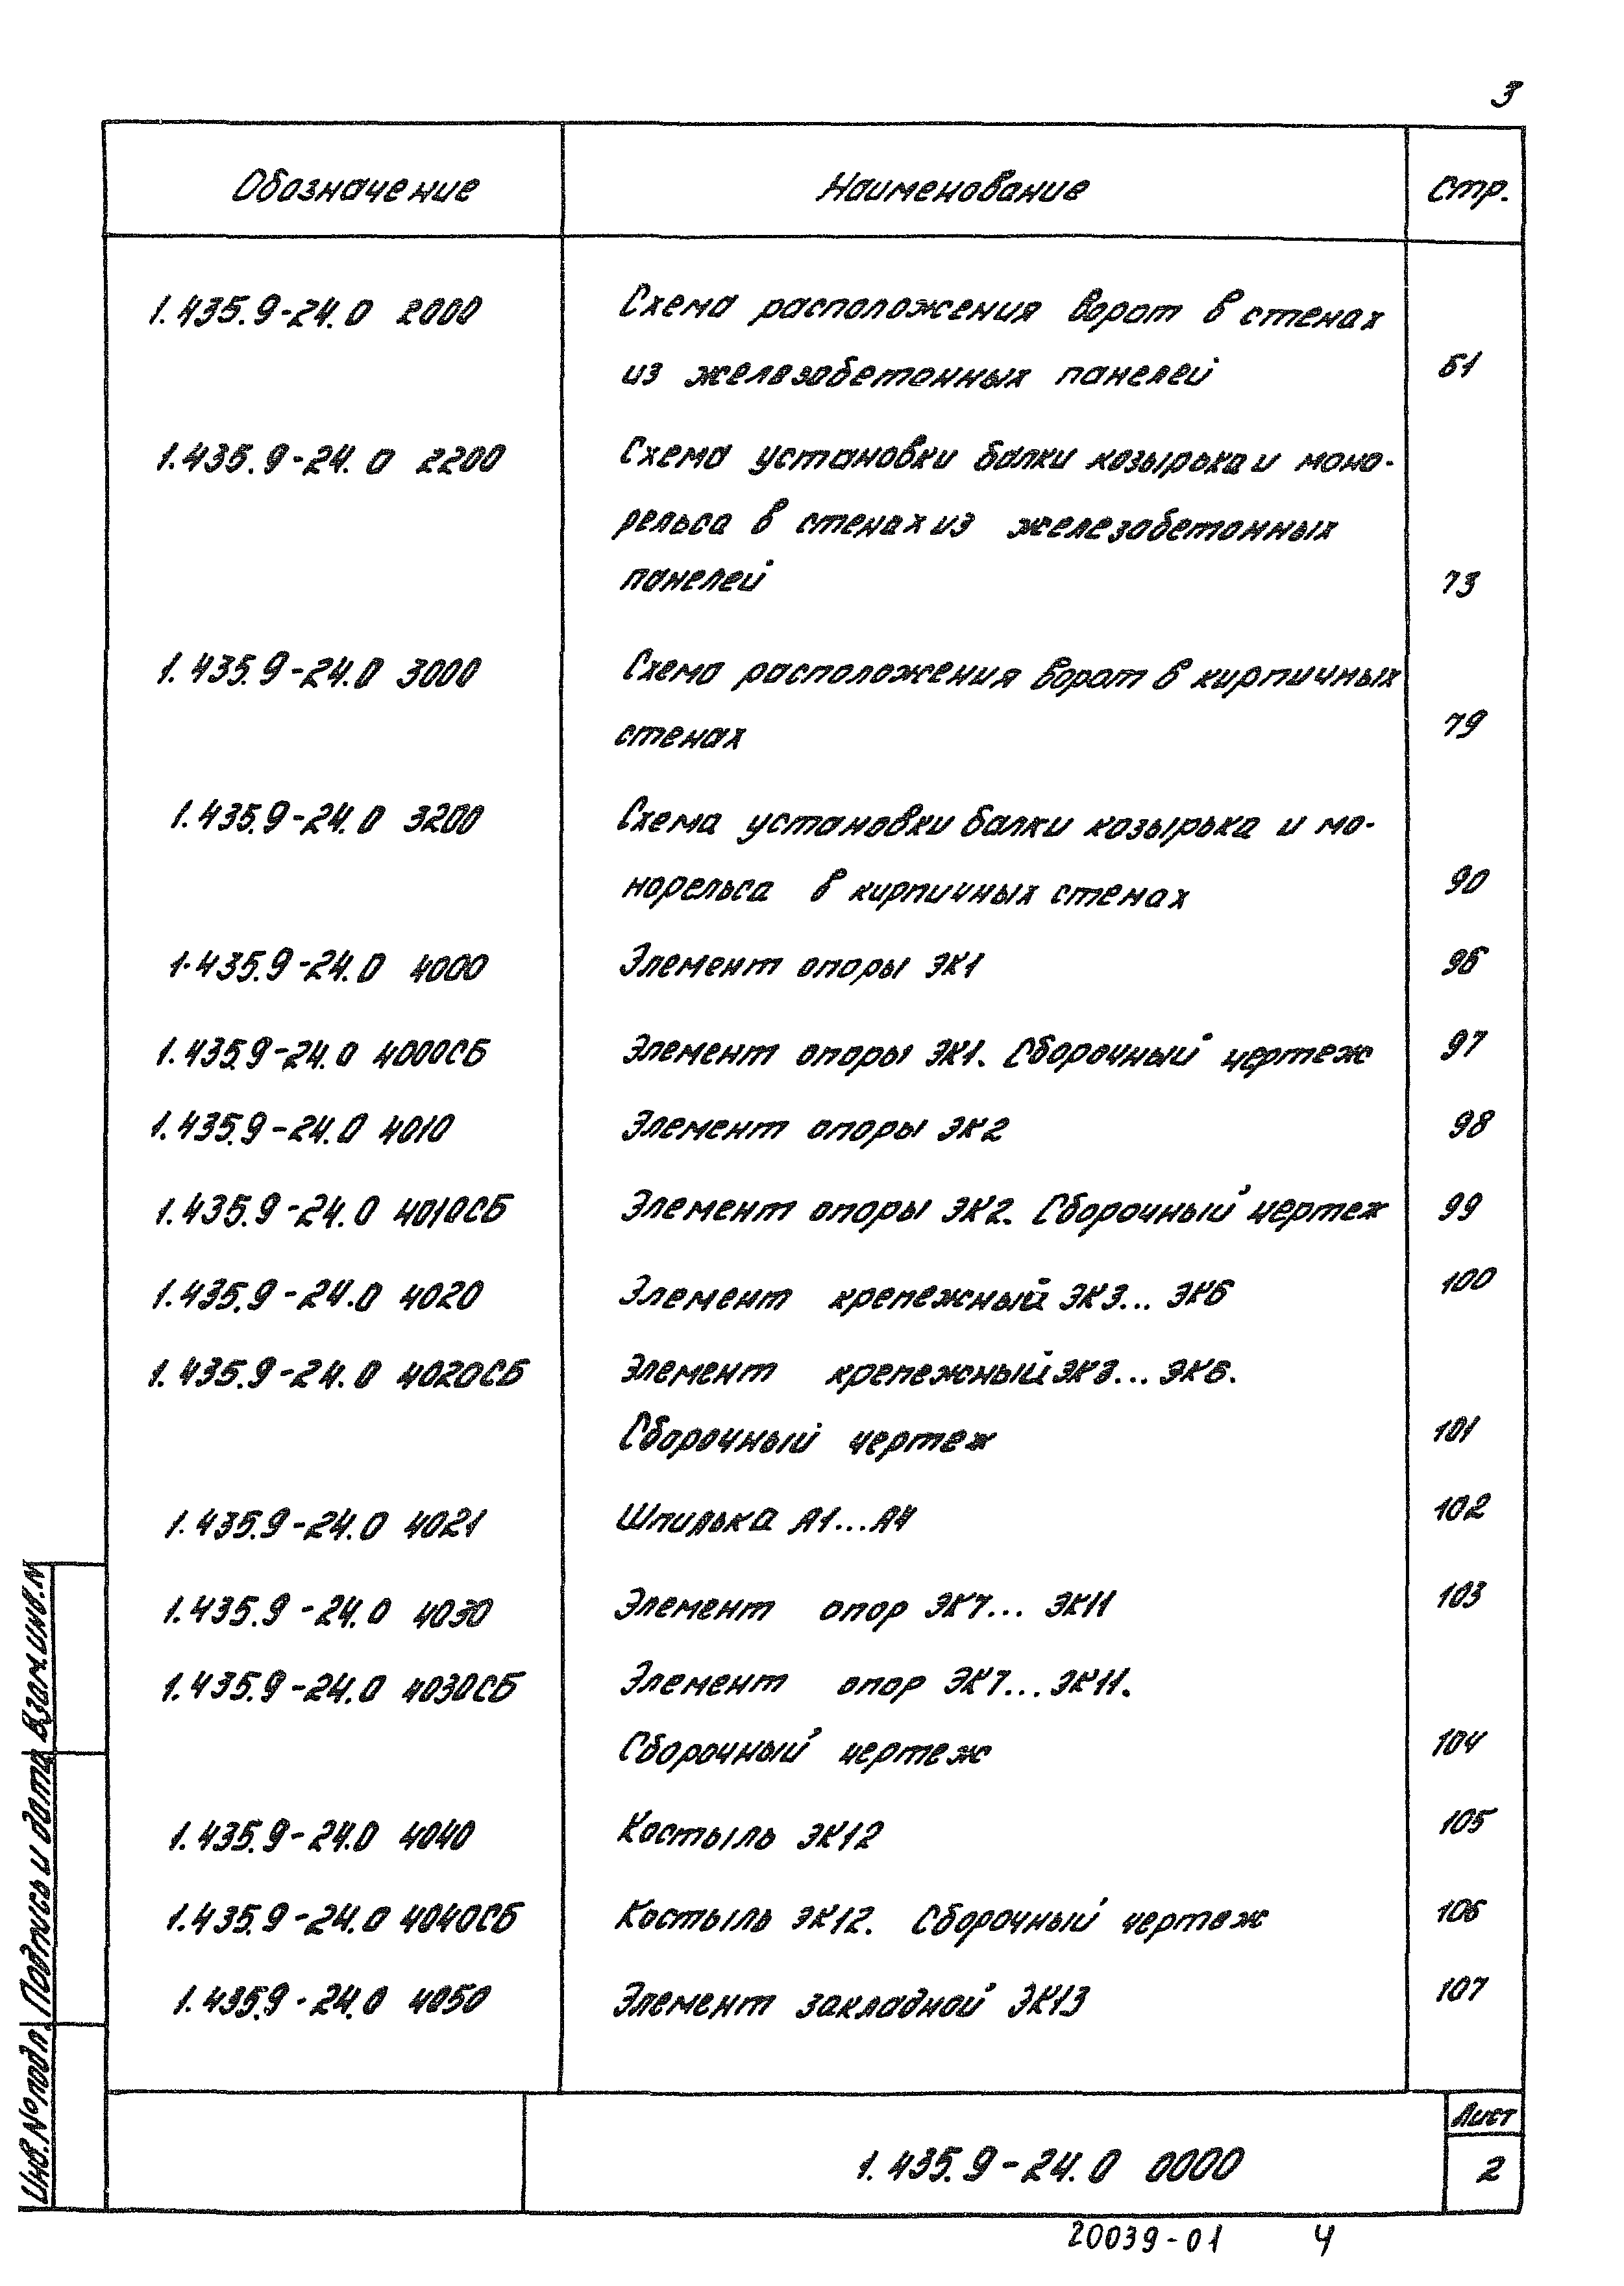 3
Обозначение Наименование Стр.
1.435.9-24.0 2000 Схема расположения ворот в стенах
из железобетонных панелей 61
1.435.9-24.0 2200 Схема установки балки козырька и моно-
рельса в стенах из железобетонных
панелей 73
1.435.9-24.0 3000 Схема расположения ворот в кирпичных
стенах 79
1.435.9-24.0 3200 Схема установки балки козырька и мо-
норельса в кирпичных стенах 90
1.435.9-24.0 4000 Элемент опоры ЭК1 96
1.435.9-24.0 4000СБ Элемент опоры ЭК1. Сборочный чертеж 97
1.435.9-24.0 4010 Элемент опоры ЭК2 98
1.435.9-24.0 4010СБ Элемент опоры ЭК2. Сборочный чертеж 99
1.435.9-24.0 4020 Элемент крепежный ЭК3... ЭК6 100
1.435.9-24.0 4020СБ Элемент крепежный ЭК3... ЭК6.
Сборочный чертеж 101
1.435.9-24.0 4021 Шпилька А1...А4 102
1.435.9-24.0 4030 Элемент опор ЭК7... ЭК11 103
1.435.9-24.0 4030СБ Элемент опор ЭК7... ЭК11.
Сборочный чертеж 104
1.435.9-24.0 4040 Костыль ЭК12 105
1.435.9-24.0 4040СБ Костыль ЭК12. Сборочный чертеж 106
1.435.9-24.0 4050 Элемент закладной ЭК13 107
Инв.№подл. Подпись и дата Взам.инв.N
1.435.9-24.0 0000
Лист
2
20039-01 4